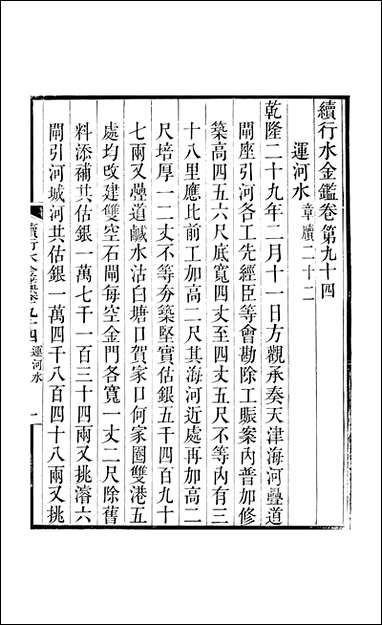 續行水金鑑卷第九十四
運河水章牘二十二
乾隆二十九年二月十一日方觀承奏天津海河疊道
閘座引河各工先經臣等會勘除工賑案內普加修
築高四五六尺底寬四丈至四丈五尺不等內有三
十八里應比前工加高二尺其海河近處再加高二
尺培厚一二丈不等夯築堅實估銀五千四百九十
七兩又疊道鹹水沽白塘口賀家口何家圈雙港五
處均改建雙空石閘每空金門各寬一丈二尺除舊
料添補共估銀一萬七千一百三十四兩又挑濬六
閘引河城河共估銀一萬四千八百四十八兩又挑
續行水金鑑卷九十四 運河水 一